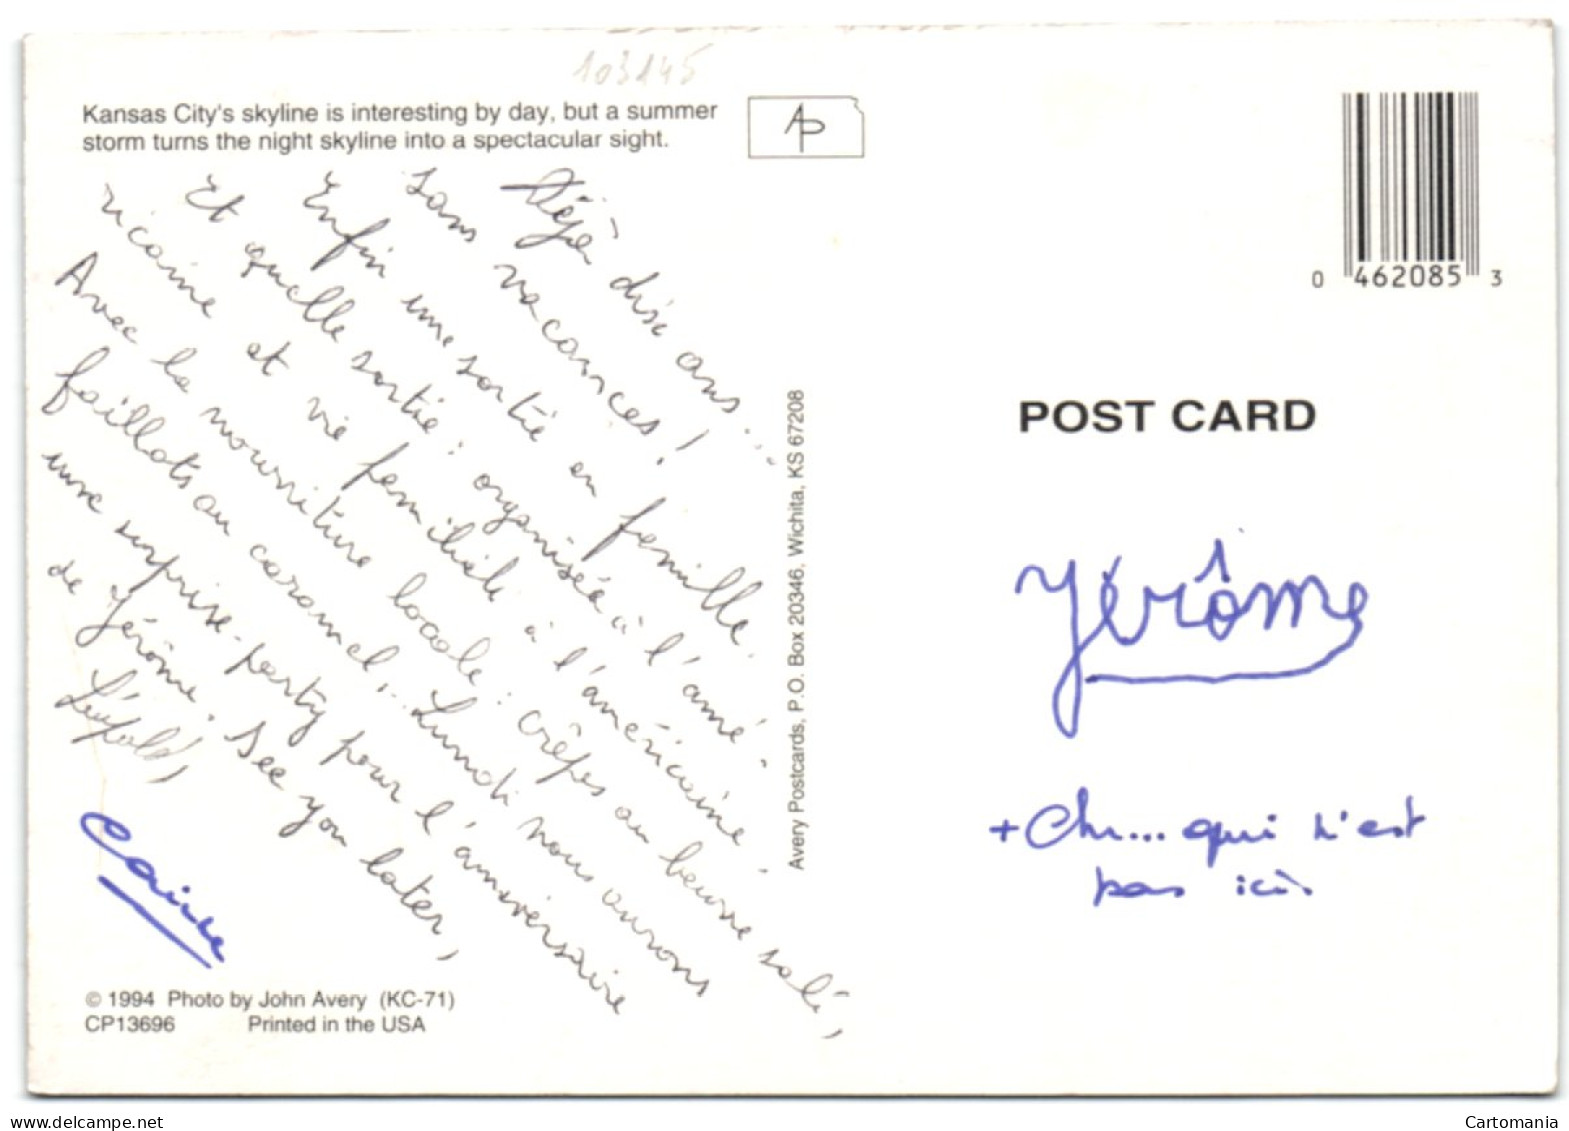 103145
Kansas City's skyline is interesting by day, but a summer
storm turns the night skyline into a spectacular sight.
AP
Déjà dix ans...
sans vacances !
Enfin une sortie en famille.
Et quelle sortie : organisée à l'amé-
ricaine et vie familiale à l'américaine.
Avec la nourriture locale : crêpes au beurre salé,
faillots au caramel... Lundi nous aurons
une surprise-party pour l'anniversaire
de Jérôme. See you later,
Claire
© 1994 Photo by John Avery (KC-71)
CP13696 Printed in the USA
Avery Postcards, P.O. Box 20346, Wichita, KS 67208
0 462085 3
POST CARD
Jérôme
+ Chr... qui n'est
pas ici.
delcampe.net
Cartomania